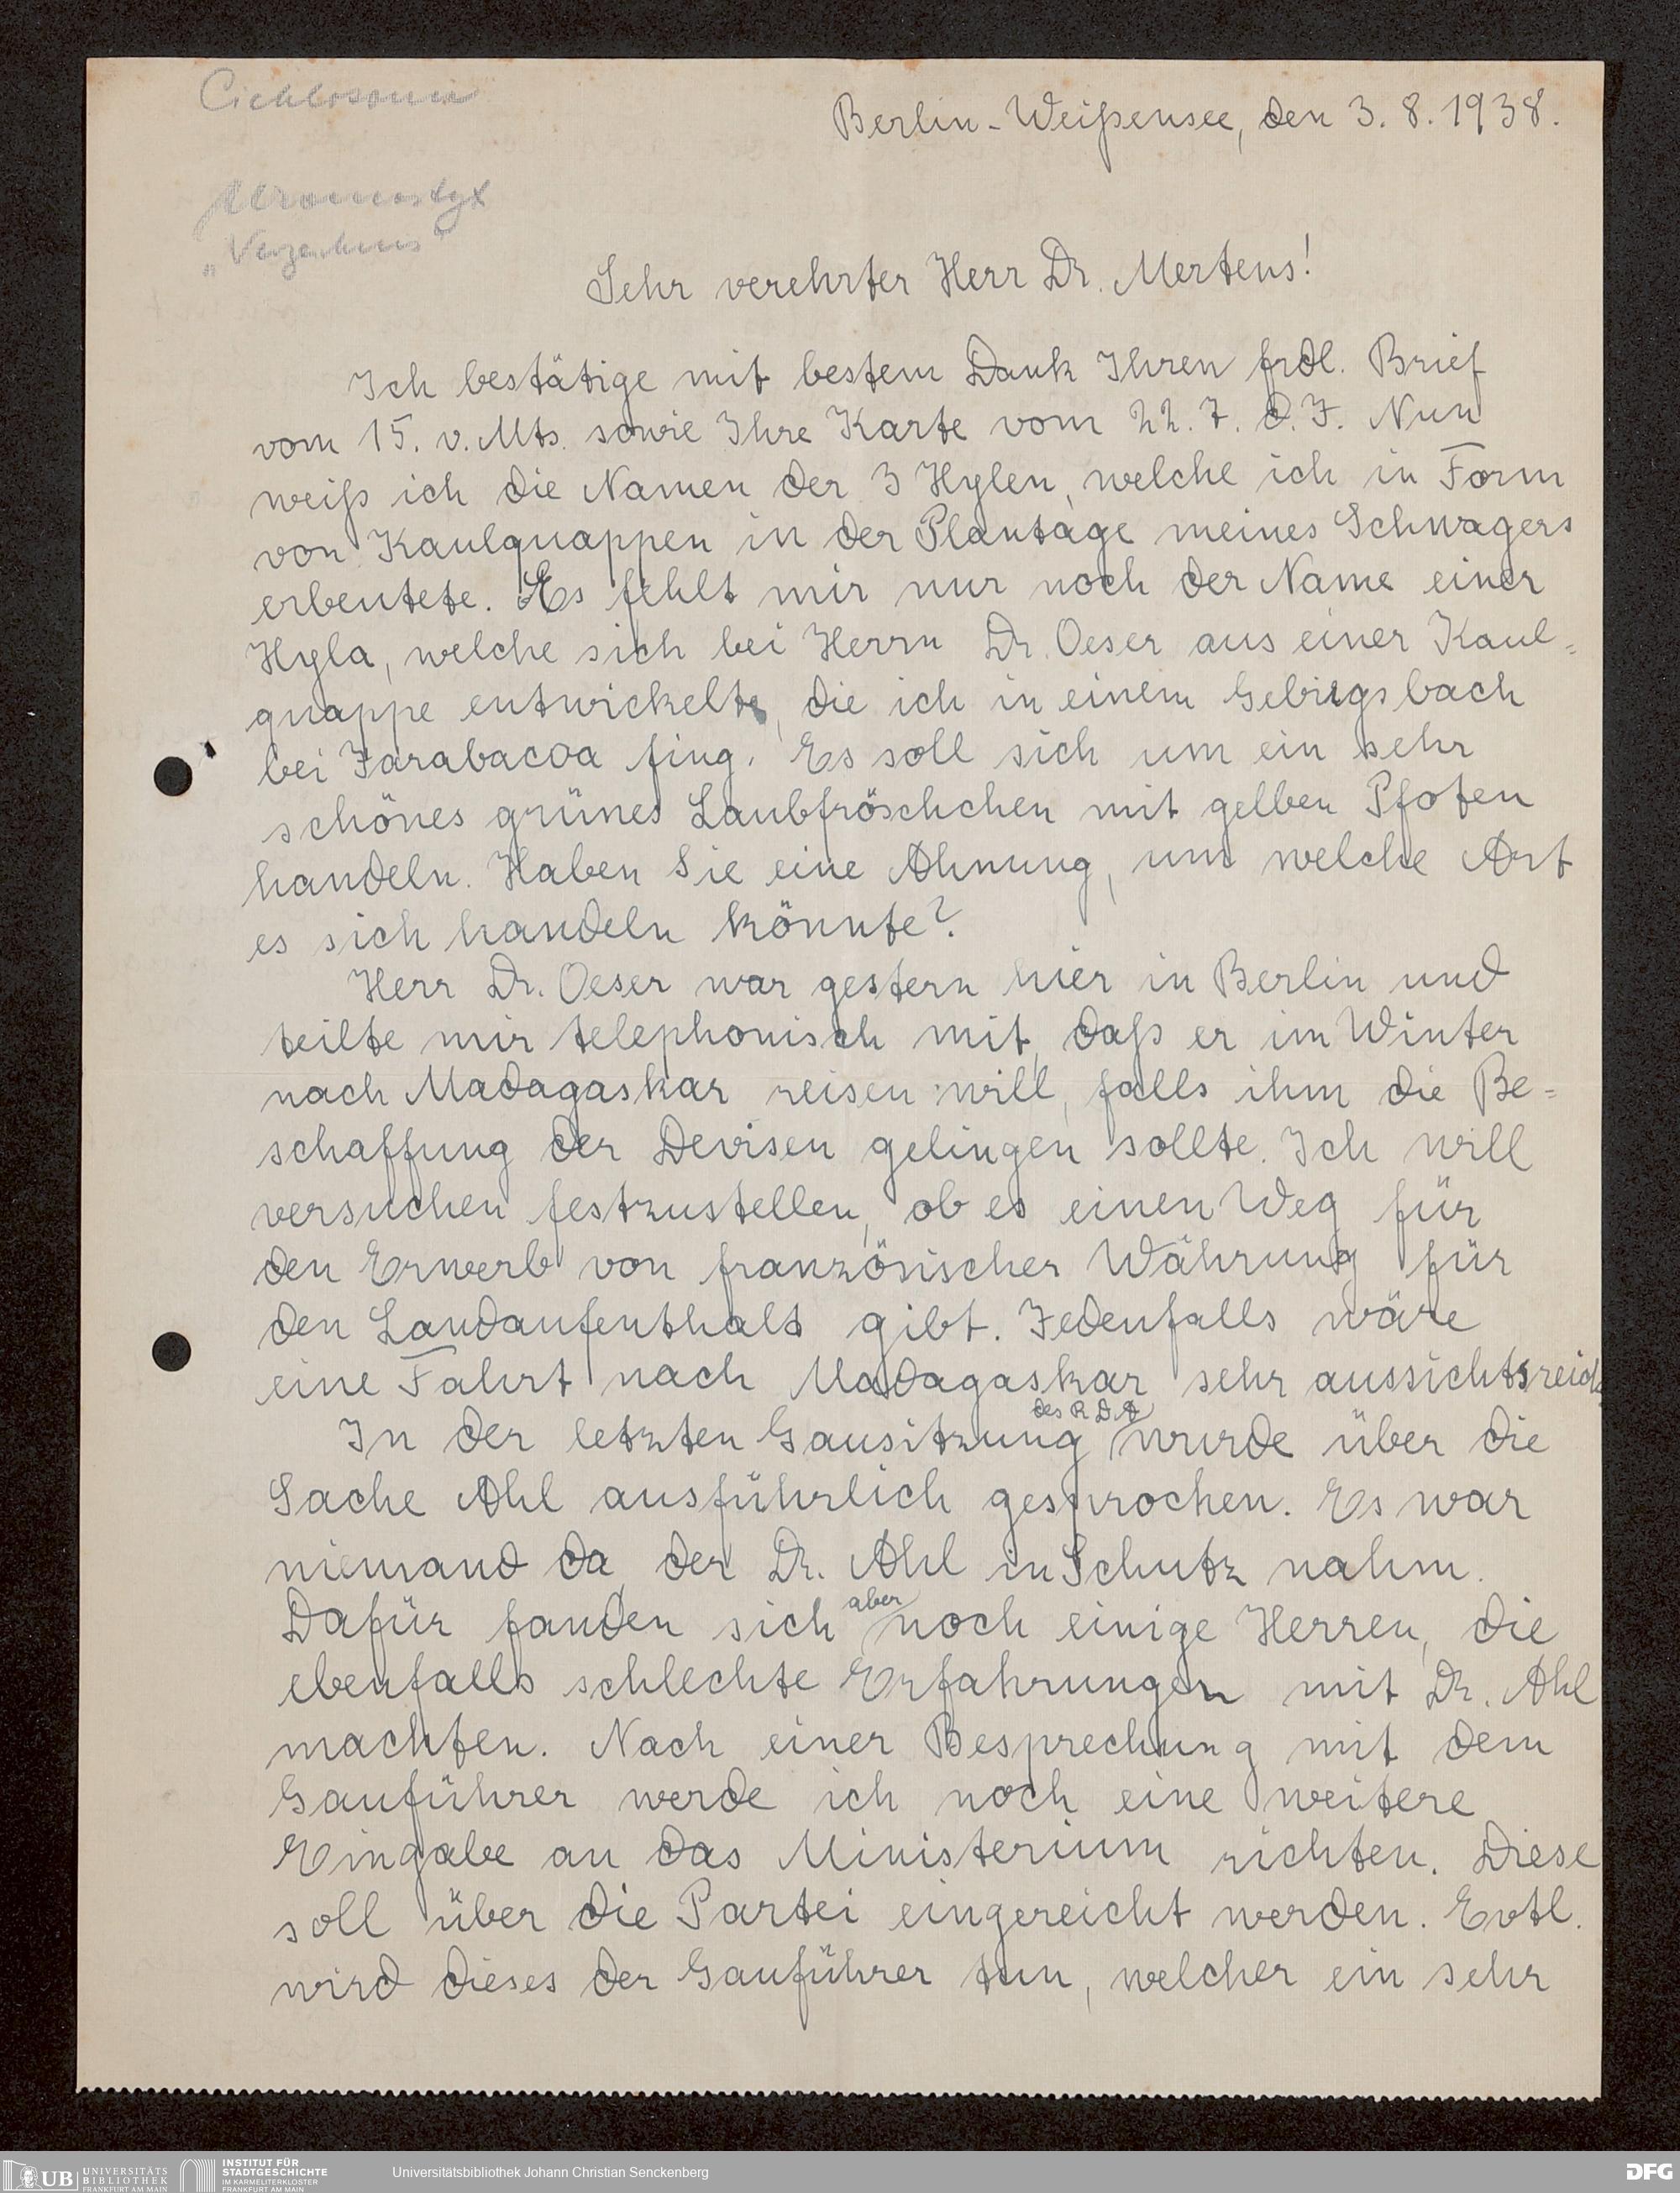 Cichlosoma
Berlin-Weißensee, den 3. 8. 1938.
Uromastyx
„Verzeichnis"
Sehr verehrter Herr Dr. Mertens!
Ich bestätige mit bestem Dank Ihren frdl. Brief
vom 15. v. Mts. sowie Ihre Karte vom 22. 7. d. J. Nun
weiß ich die Namen der 3 Hylen, welche ich in Form
von Kaulquappen in der Plantage meines Schwagers
erbeutete. Es fehlt mir nur noch der Name einer
Hyla, welche sich bei Herrn Dr. Oeser aus einer Kaul=
quappe entwickelte, die ich in einem Gebirgsbach
bei Jarabacoa fing. Es soll sich um ein sehr
schönes grünes Laubfröschchen mit gelben Pfoten
handeln. Haben Sie eine Ahnung, um welche Art
es sich handeln könnte?
Herr Dr. Oeser war gestern hier in Berlin und
teilte mir telephonisch mit, daß er im Winter
nach Madagaskar reisen will, falls ihm die Be=
schaffung der Devisen gelingen sollte. Ich will
versuchen festzustellen, ob es einen Weg für
den Erwerb von französischer Währung für
den Landaufenthalt gibt. Jedenfalls wäre
eine Fahrt nach Madagaskar sehr aussichtsreich
des R D A
In der letzten Gausitzung wurde über die
Sache Ahl ausführlich gesprochen. Es war
niemand da, der Dr. Ahl in Schutz nahm.
aber
Dafür fanden sich noch einige Herren, die
ebenfalls schlechte Erfahrungen mit Dr. Ahl
machten. Nach einer Besprechung mit dem
Gauführer werde ich noch eine weitere
Eingabe an das Ministerium richten. Diese
soll über die Partei eingereicht werden. Evtl.
wird dieses der Gauführer tun, welcher ein sehr
UB UNIVERSITÄTS BIBLIOTHEK FRANKFURT AM MAIN
INSTITUT FÜR STADTGESCHICHTE IM KARMELITERKLOSTER FRANKFURT AM MAIN
Universitätsbibliothek Johann Christian Senckenberg
DFG